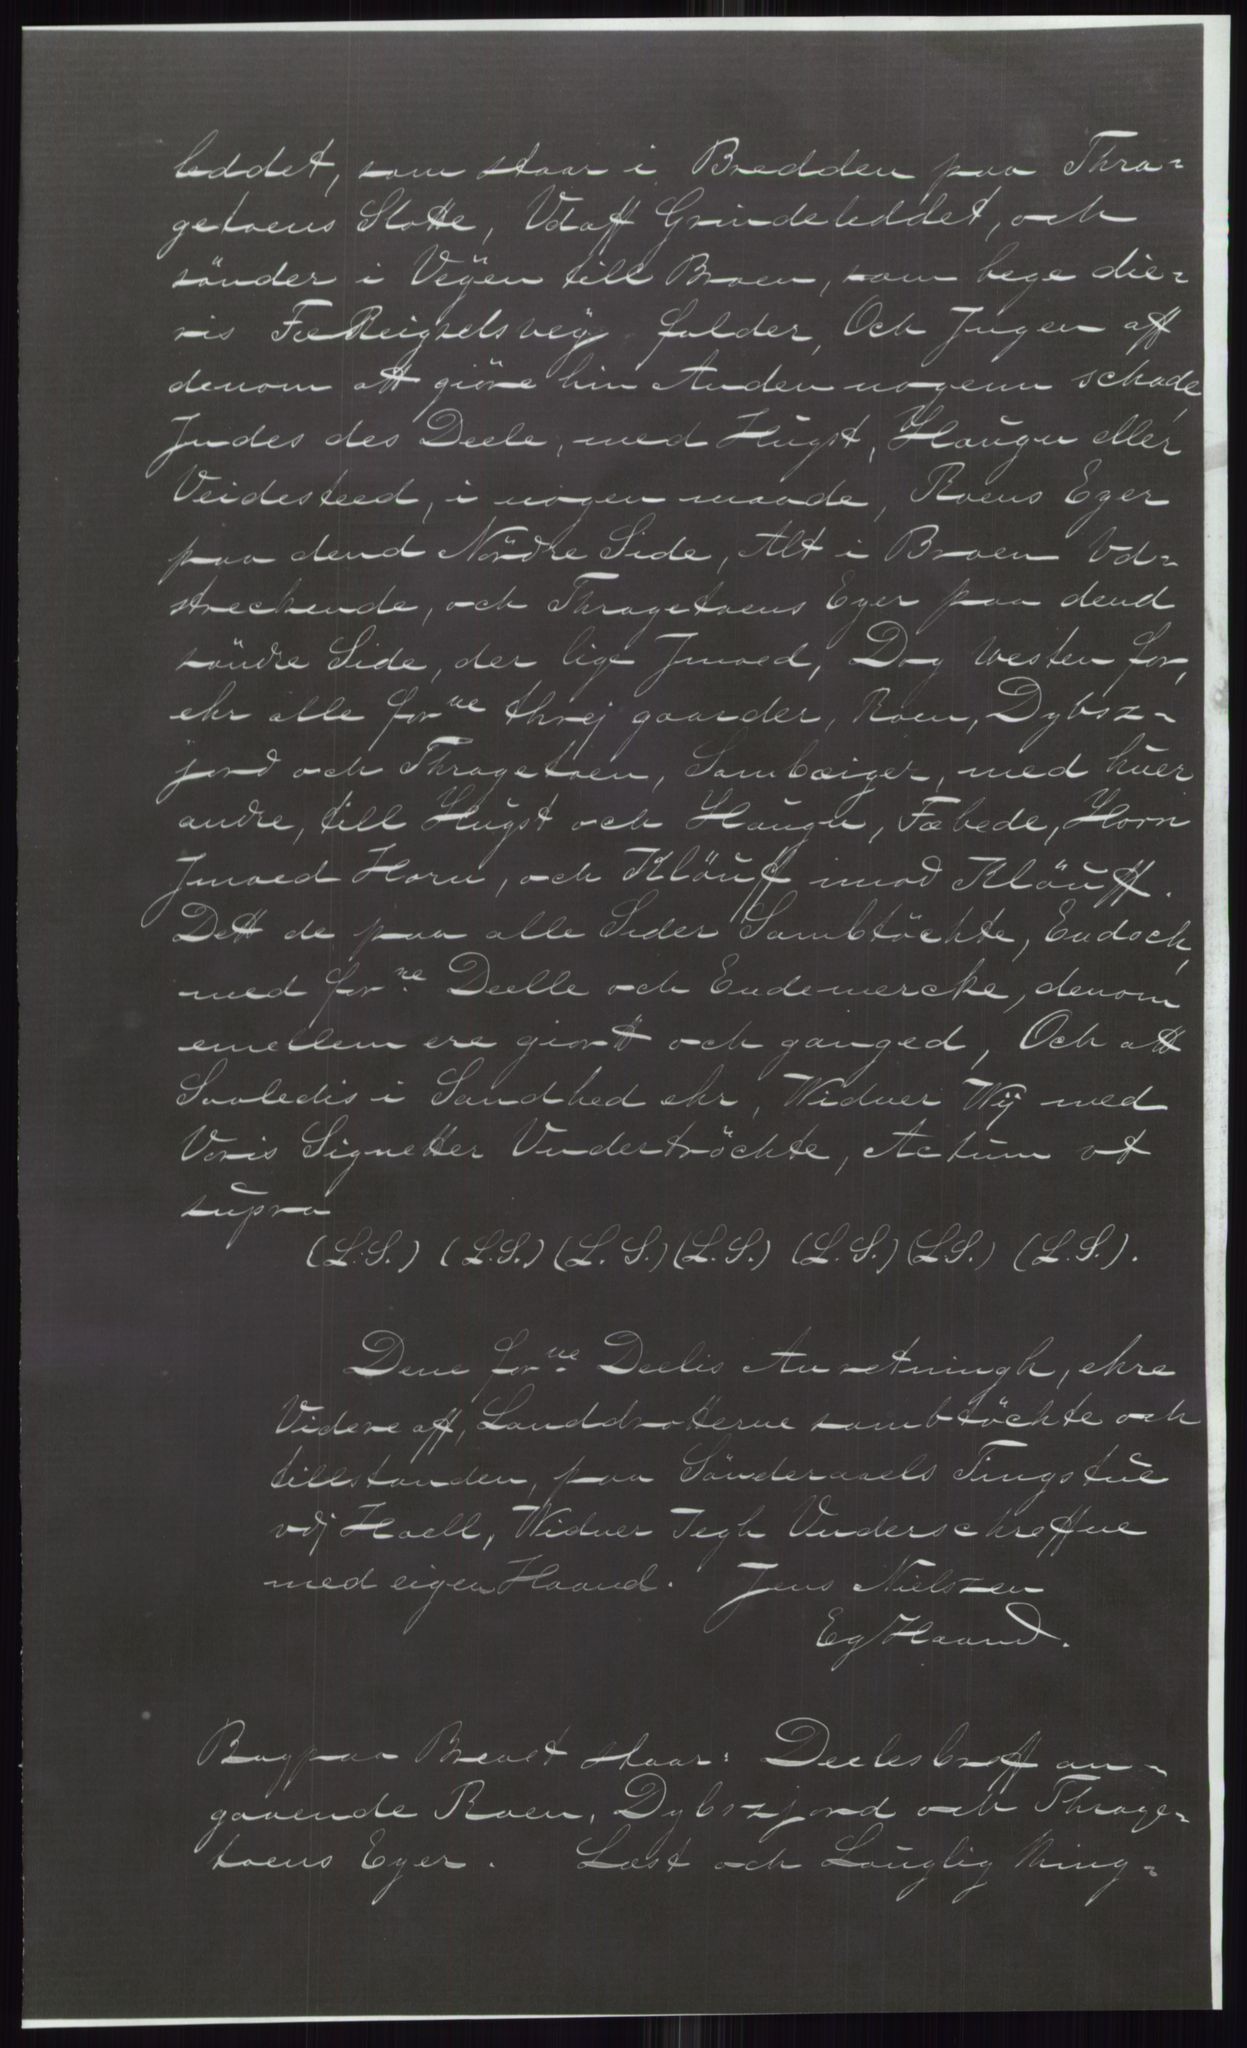 leddet, som staar i Bredden paa Thra-
getoens Slotte, Vdaff Grindeleddet, och
sönder i Vëyen till Broen, som bege die-
ris Fæ Reigselsvëy falder, Och Jngen aff
denom att giöre hin Anden nogenn schade,
Jndes des Deele, med Hŭgst, Haŭgn eller
Veidesteed, i nogen maade, Roens Eyer
paa dend Nördre Side, Alt i Broen Vd-
streckende, och Thragetoens Eyer paa dend
söndre Side, der lige Jmoed, Dog westen for,
ehr alle forne threj gaarder, Roen, Dybsz-
jord och Thragetoen, Sambeiger, med hŭer
andre, till Hŭgst och Haŭgn, Fæbede, Horn
Jmoed Horn, och Klöŭff imod Klöŭff.
Dett de paa alle Sider Sambtöchte, Endoch,
med forne Deelle och Endemercke, denom
emellem ere giortt och ganged, Och att
Saaledis i Sandhed ehr, Widner Wij med
Voris Signetter Vndertröchte, Actum vt
sŭpra
(L.S.) (L.S.) (L.S.) (L.S.) (L.S.) (L.S.) (L.S.).
Dene forne Deelis An retningh, ehre
Videre aff, Landdrotterne sambtöchte och
tillstanden, paa Sönderaaels Tingstŭe
vdj Hoell, Widner Jegh Vnderschreffne
med eigen Haand. Jens Nielszen
Eg Haand.
Bag paa Brevet staar: Deelesbreff an-
gaaende Roen, Dybszjord och Thrage-
toens Eyer. Læst och Loŭglig Ting-